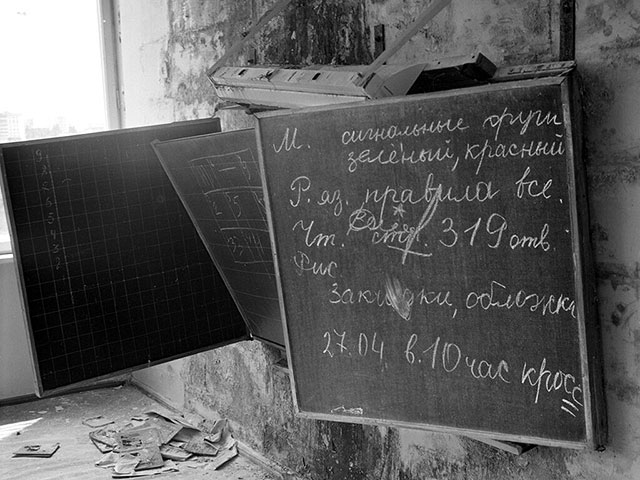 М. сигнальные фигуры
зелёный, красный
Р. яз. правила все.
Чт. стр. 319 отв.
Рис
Закладки, обложки
27.04 в 10 час кросс